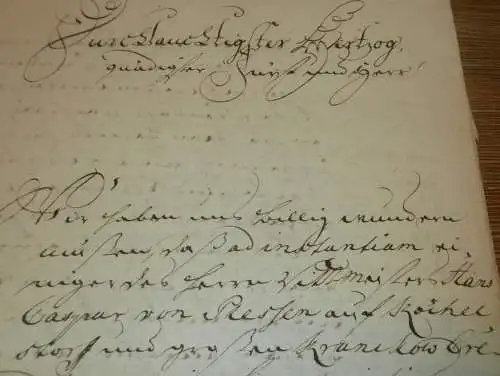 Durchlauchtigster Hertzog,
gnädigster Fürst und Herr!
Wir haben uns billig wundern
müssen, daß ad instantiam ei
niger des Herrn Rittmeisters Hans
Caspar von Plessen auf Köchel
storf und großen Krankow Cre